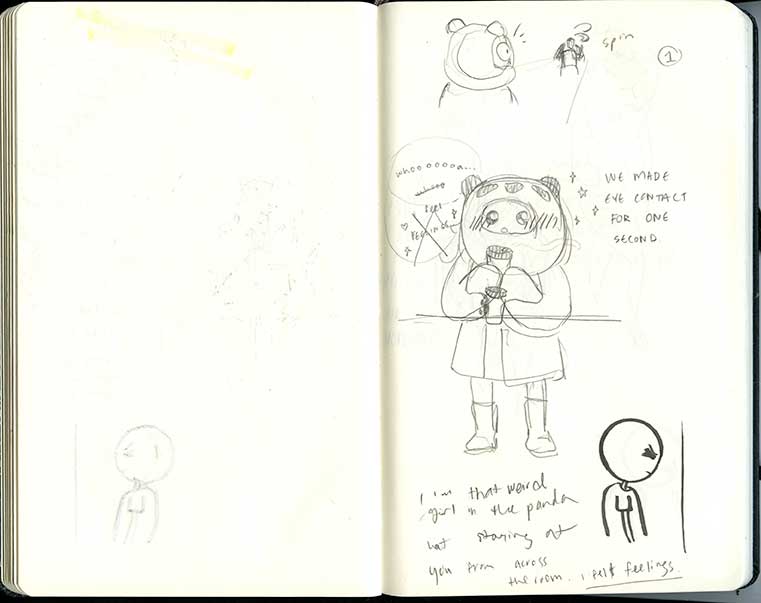 spin
1
whoooooooa...
whoop
FEELINGS
WE MADE
EYE CONTACT
FOR ONE
SECOND.
i'm that weird
girl in the panda
hat staring at
you from across
the room. i felt feelings.